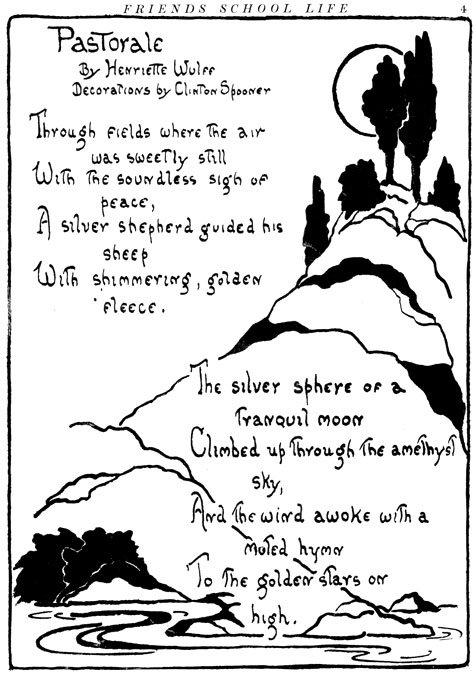 FRIENDS SCHOOL LIFE 4
Pastorale
By Henriette Wulff
Decorations by Clinton Spooner
Through fields where the air
was sweetly still
With the soundless sigh of
peace,
A silver shepherd guided his
sheep
With shimmering, golden
fleece.
The silver sphere of a
tranquil moon
Climbed up through the amethyst
sky,
And the wind awoke with a
muted hymn
To the golden stars on
high.